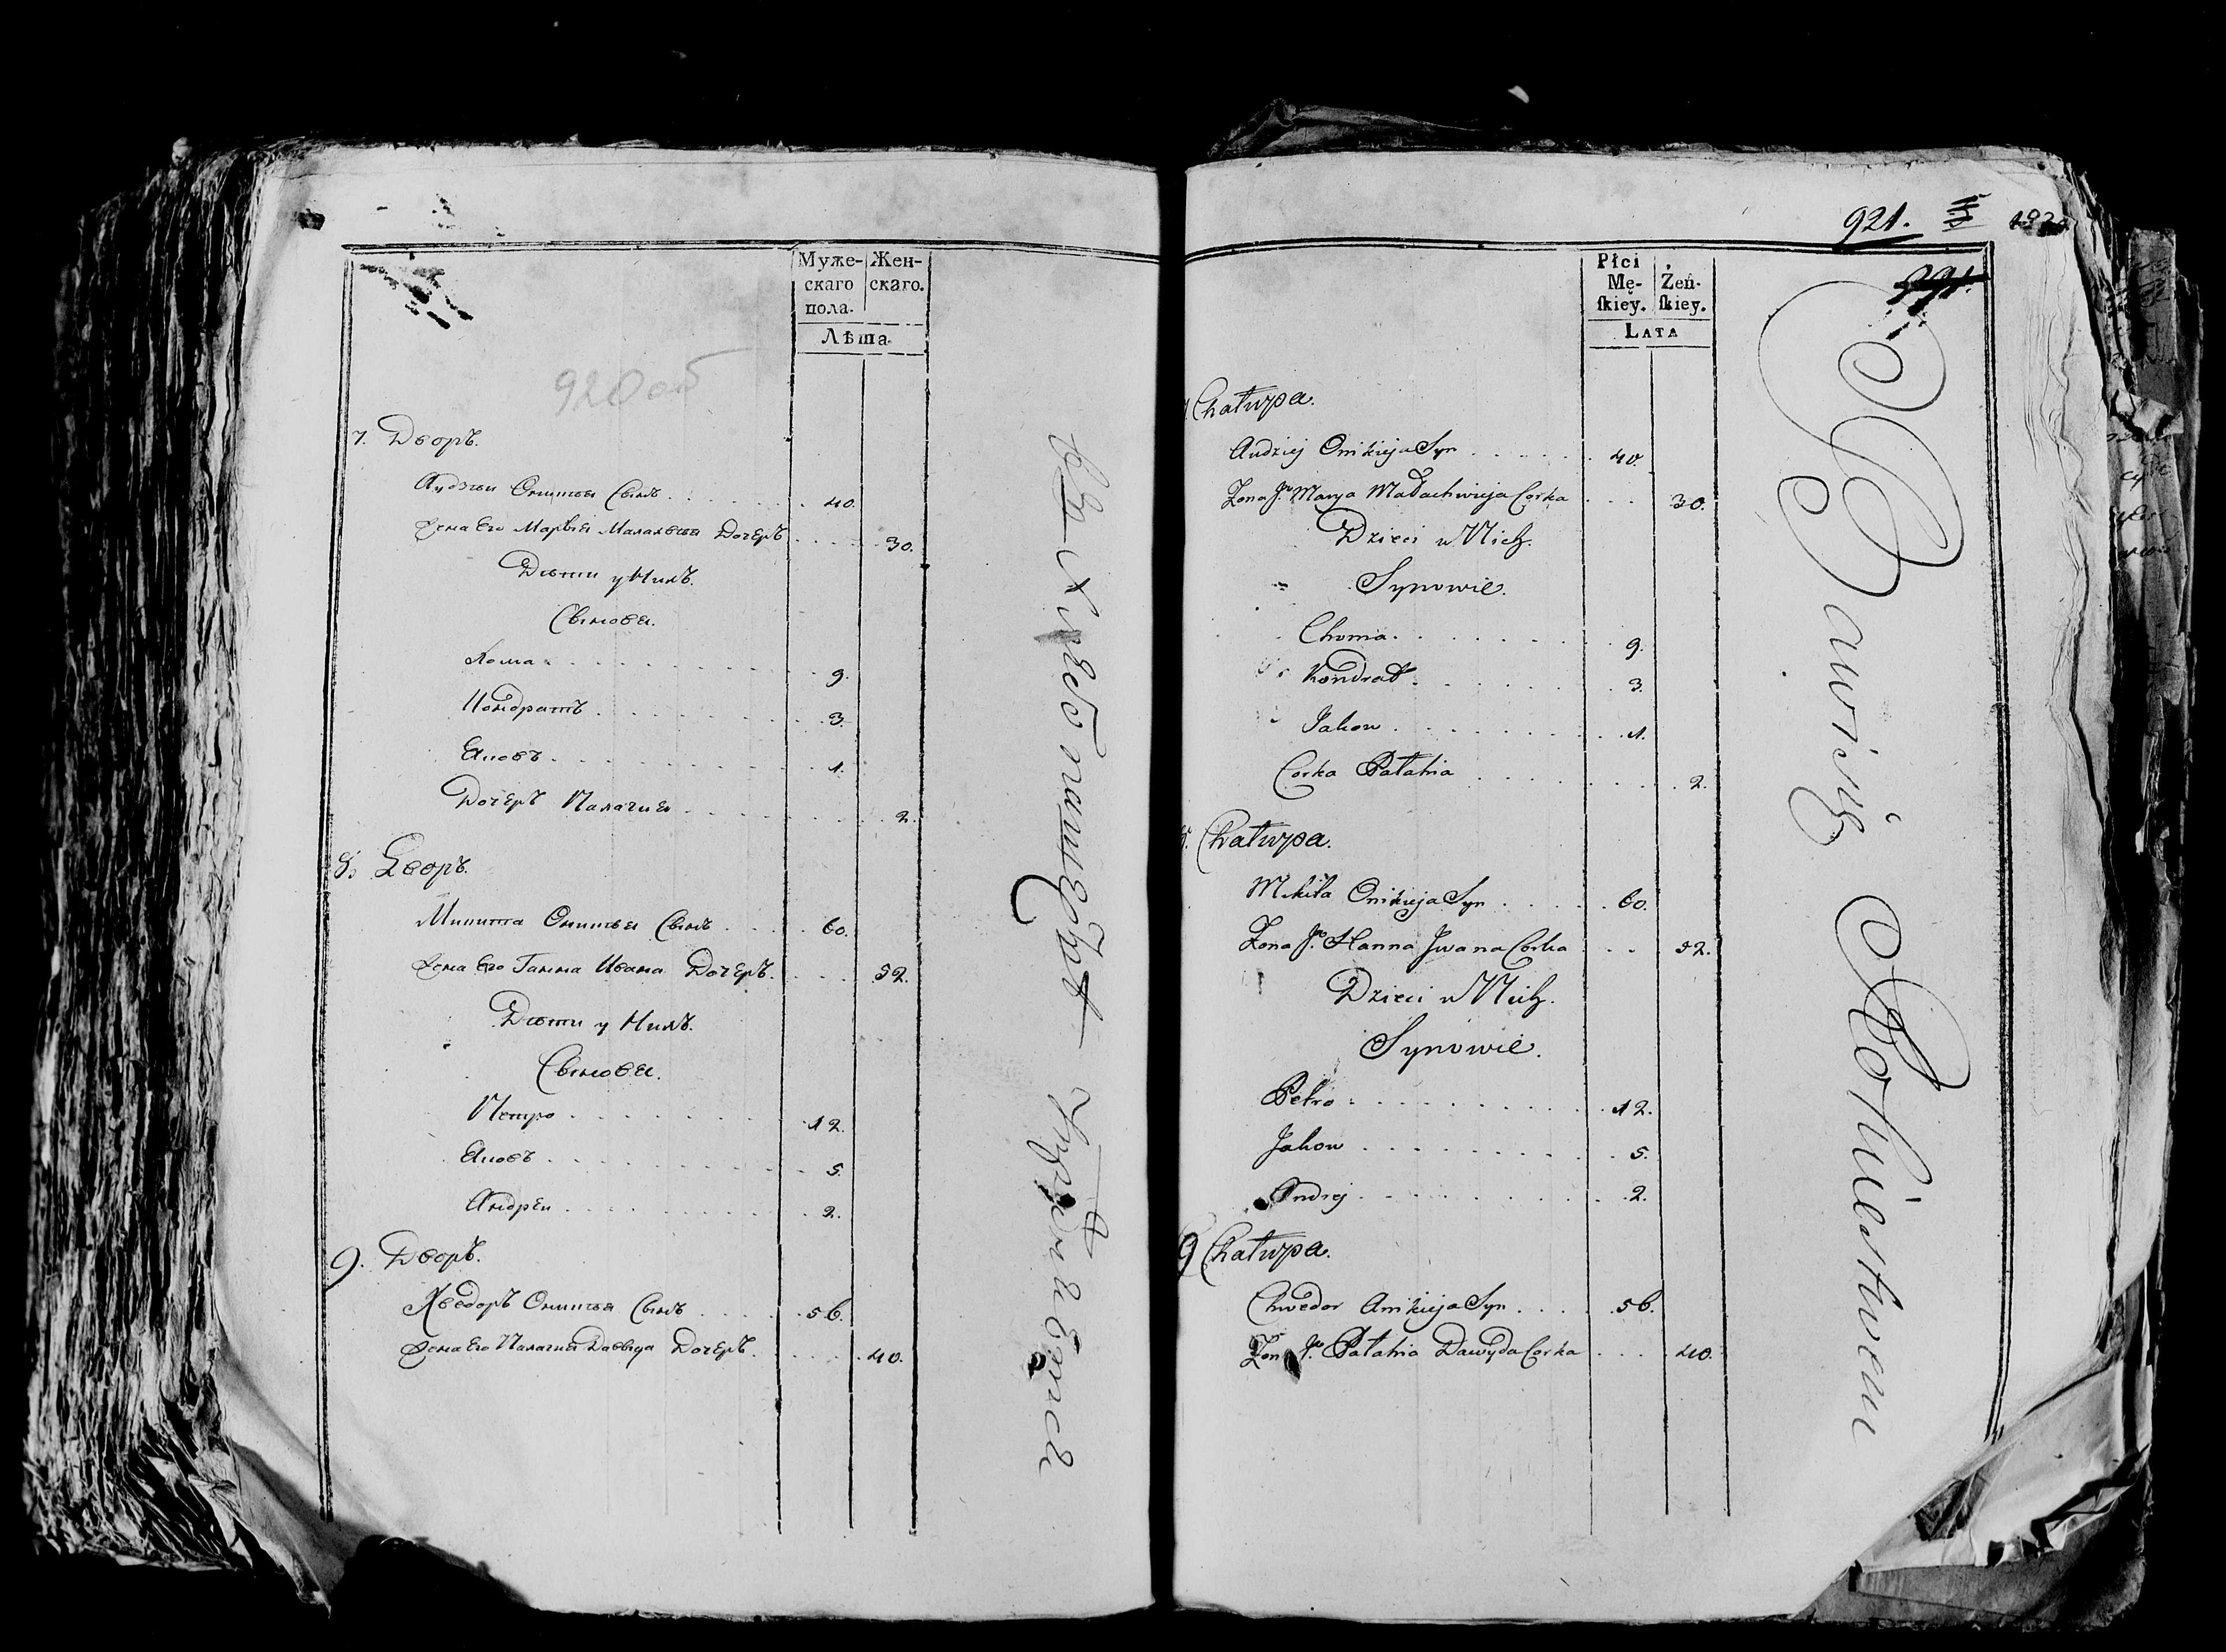 920 об
Муже-
скаго
пола.
Жен-
скаго.
Лѣта.
7. Дворъ.
Аудзеи Оникея Сынъ . . . . . . 40.
Жена Его Марья Малахвея Дочеръ . . . . 30.
Дѣти у Нихъ.
Сынове.
Хома . . . . . . . . 9.
Кондратъ . . . . . . . . 3.
Яковъ . . . . . . . . 1.
Дочеръ Палагия . . . . . . . . 2.
8. Дворъ.
Микита Оникея Сынъ . . . . 60.
Жена Его Ганна Ивана Дочеръ . . . 52.
Дѣти у Нихъ.
Сынове.
Петро . . . . . . . . 12.
Яковъ . . . . . . . . 5.
Андреи . . . . . . . . 2.
9. Дворъ.
Хведоръ Оникея Сынъ . . . . 56.
Жена Его Палагия Давыда Дочеръ . . . . 40.
921.
Płci
Mę-
ſkiey.
Żeń-
ſkiey.
LATA
Chałupa.
Audziej Onikieja Syn . . . . . . 40.
Zona Jgo Marya Małachwieja Corka . . . 30.
Dzieci u Nich.
Synowie.
Choma . . . . . . . . 9.
Kondrat . . . . . . . . 3.
Jakow . . . . . . . . 1.
Corka Pałahia . . . . . . . . 2.
8. Chałupa.
Mikita Onikieja Syn . . . . . 60.
Zona Jgo Hanna Jwana Corka . . . 52.
Dzieci u Nich.
Synowie.
Petro . . . . . . . . 12.
Jakow . . . . . . . . 5.
Andrej . . . . . . . . 2.
9 Chałupa.
Chwedor Anikieja Syn . . . . 56.
Zona Jgo Pałahia Dawyda Corka . . . 40.